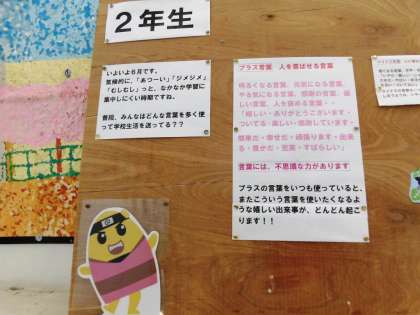 ２年生
いよいよ６月です。
気候的に、「あつーい」「ジメジメ」
「むしむし」っと、なかなか学習に
集中しにくい時期ですね。
普段、みんなはどんな言葉を多く使
って学校生活を送ってる？？
プラス言葉 人を喜ばせる言葉
明るくなる言葉、元気になる言葉、
やる気になる言葉、感謝の言葉、優
しい言葉、人を褒める言葉・・
「嬉しい・ありがとうございます・
ついてる・楽しい・感謝しています・
簡単だ・幸せだ・頑張ります・出来
る・豊かだ・充実・すばらしい」
言葉には、不思議な力があります
プラスの言葉をいつも使っていると、
またこういう言葉を使いたくなるよ
うな嬉しい出来事が、どんどん起こ
ります！！